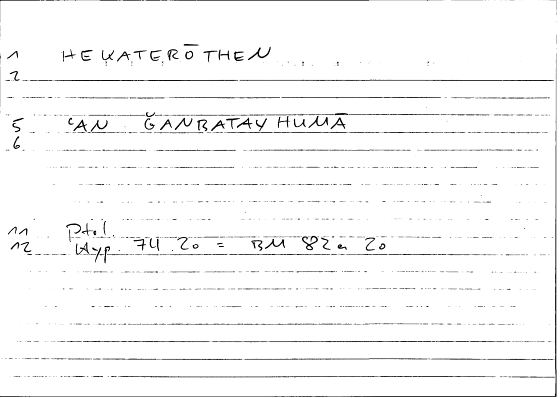 1 HEKATERŌTHEN
2
5 ʿAN ǦANBATAY HUMĀ
6
11 Ptol.
12 Hyp. 74 20 = BM 82a 20